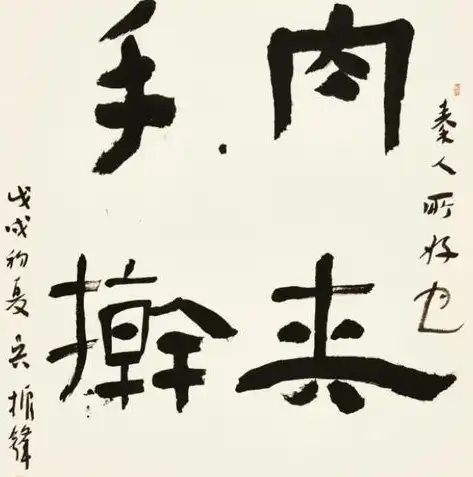 秦人所好也
肉夹
手擀
戊戌初夏吴振鋒